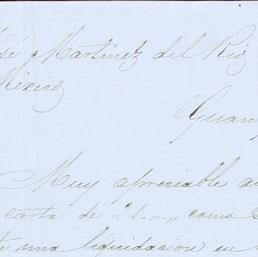 sé Martinez del Rio
México
Guan
Muy apreciable a
carta de 21 como
una liquidacion en